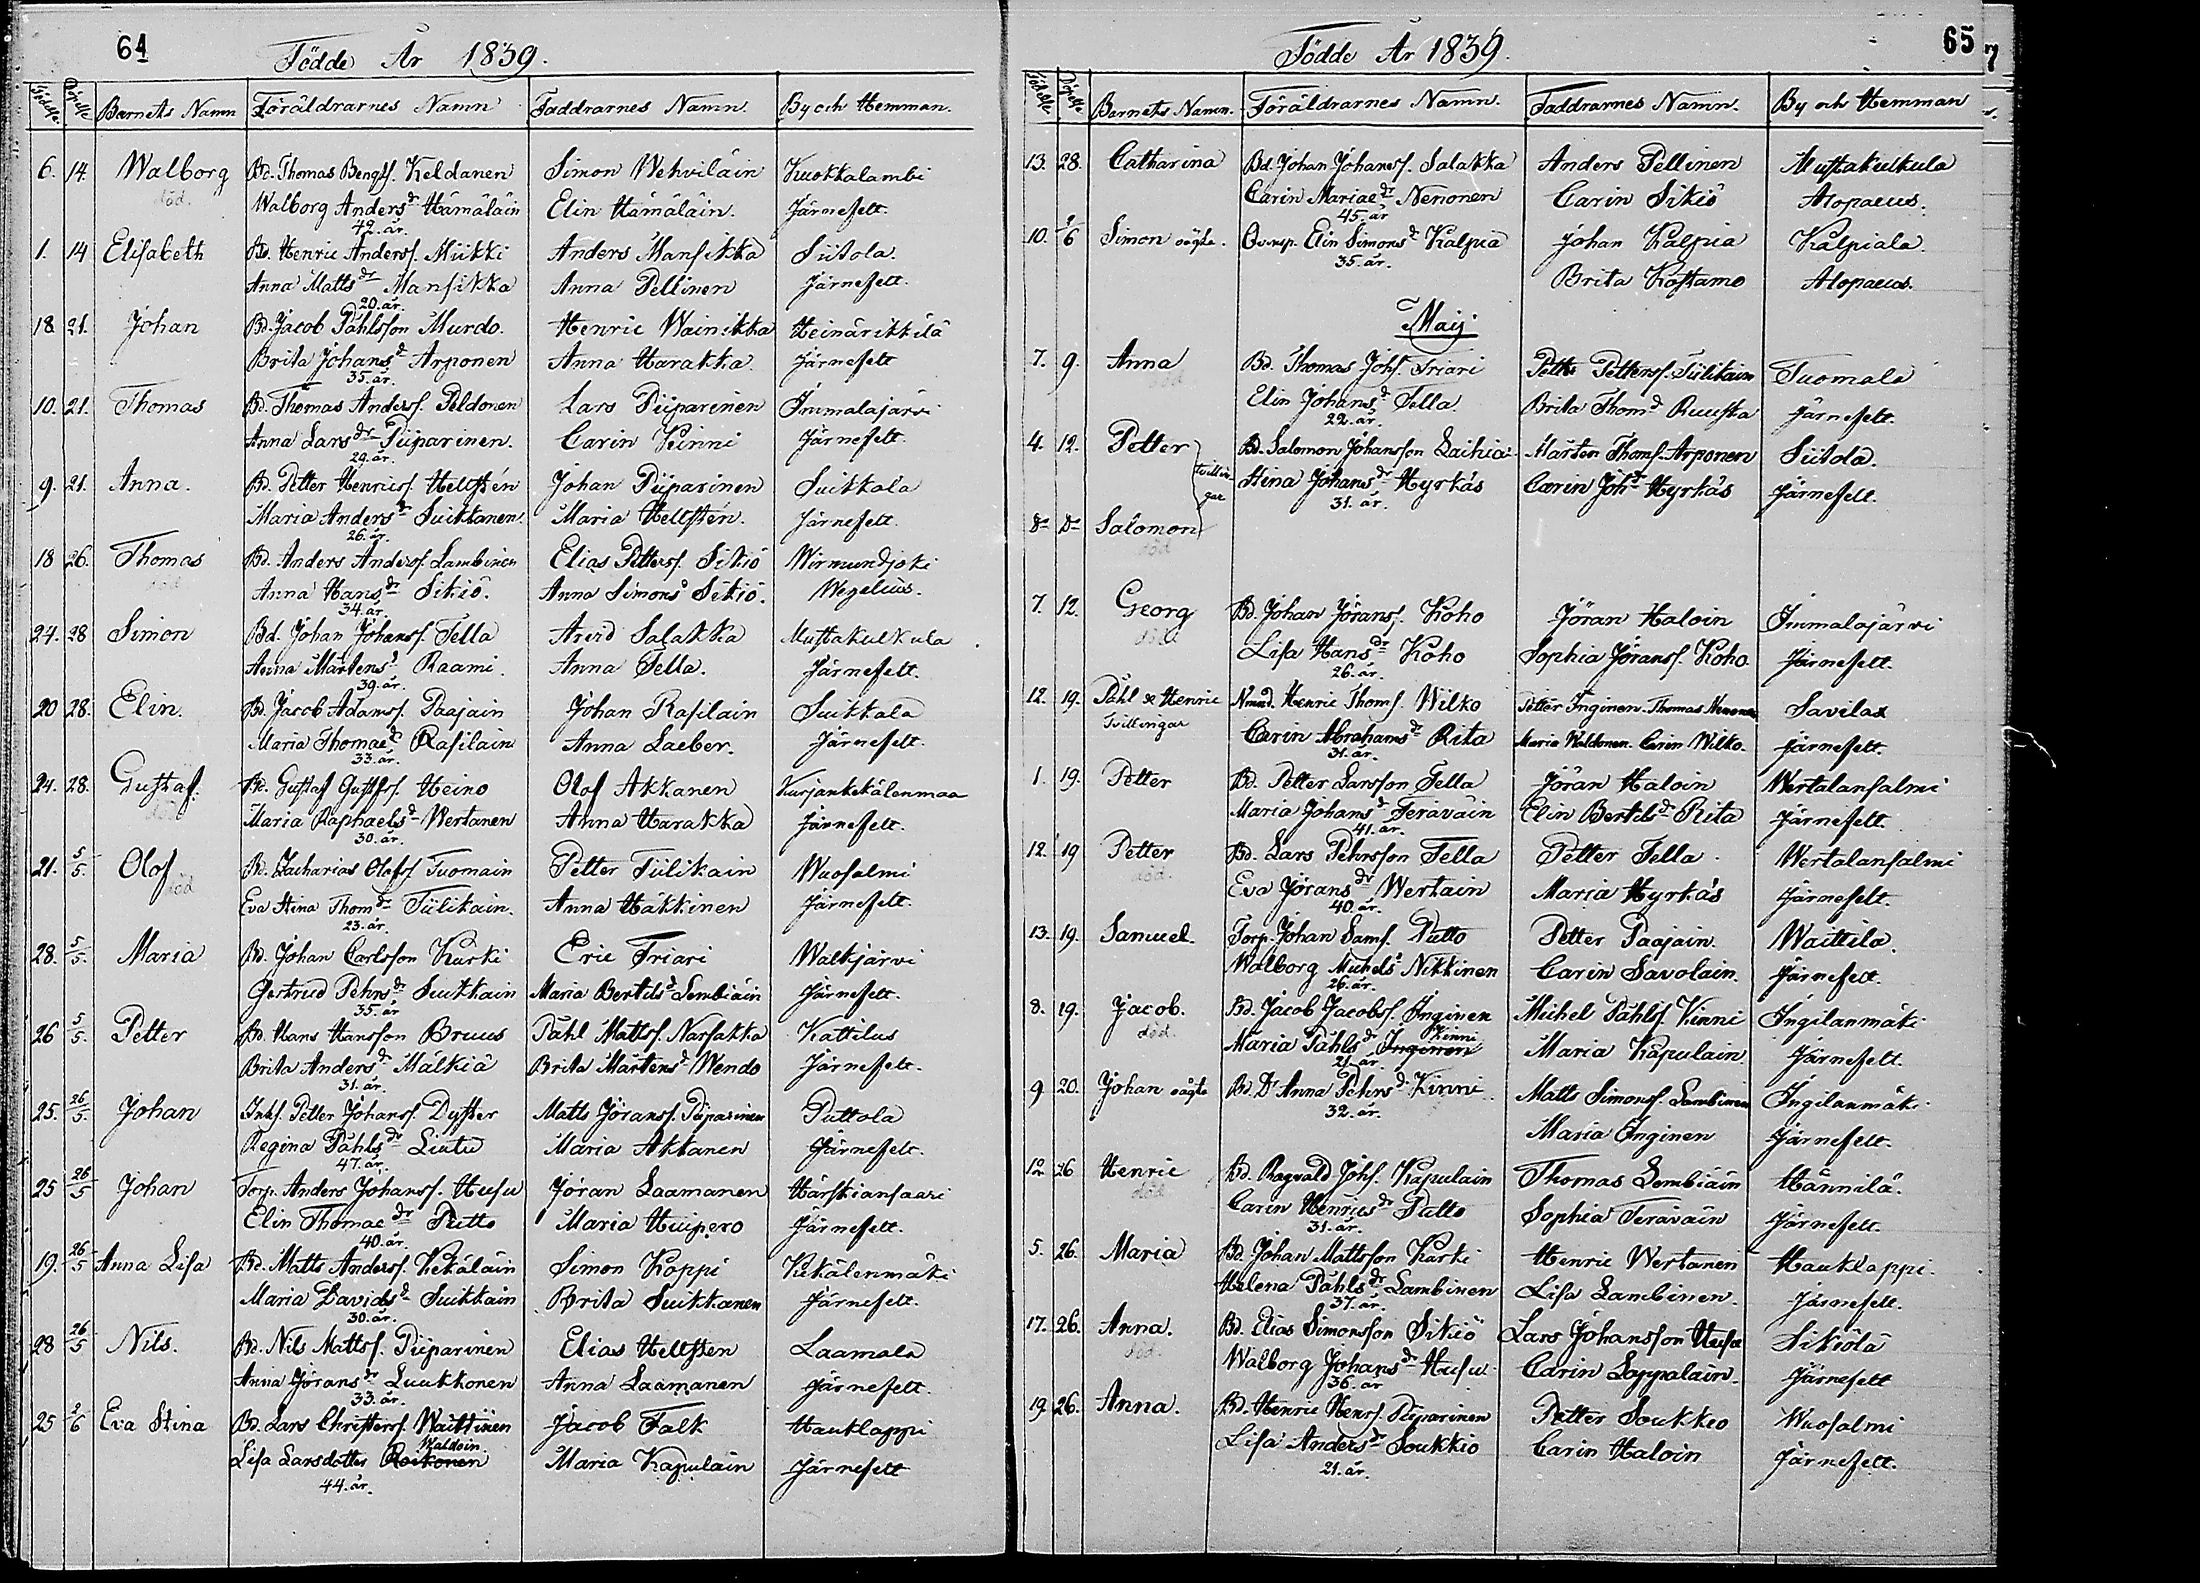 64
Födde År 1839.
Födelse. Döpelse Barnets Namn Föräldrarnes Namn Faddrarnes Namn. By och Hemman.
6. 14. Walborg Bd. Thomas Bengtss. Keldanen Simon Wehviläin Kuokkalambi
död. Walborg Andersdr Hämäläin Elin Hämäläin. Järnefelt.
42. år.
1. 14 Elisabeth Bd. Henric Anderss. Miikki Anders Mansikka Siitola.
Anna Mattsdr Mansikka Anna Pellinen Järnefelt.
20. år.
18. 21. Johan Bd. Jacob Påhlsson Murdo. Henric Wainikka Heinärikkilä
Brita Johansd Arponen Anna Harakka. Järnefelt
35. år.
10. 21. Thomas Bd. Thomas Anderss. Peldonen Lars Piiparinen Immalajärvi
Anna Larsdr Piiparinen. Carin Kinni Järnefelt.
29. år.
9. 21. Anna. Bd. Petter Henricss. Hellstén Johan Piiparinen Suikkala
Maria Andersd Suikkanen. Maria Hellstén. Järnefelt.
26. år.
18 26. Thomas Bd. Anders Anderss. Lambinen Elias Petterss. Sikiö Wirmundjoki
död Anna Hansdr Sikiö. Anna Simonsd Sikiö. Wegelius.
34. år.
24. 28 Simon Bd. Johan Johanss. Tella Arvid Salakka Mustakulkula
Anna Mårtensd Raami. Anna Tella. Järnefelt.
39. år.
20 28. Elin. Bd. Jacob Adamss. Paajain Johan Rasilain Suikkala
Maria Thomaed Rasilain Anna Laeber. Järnefelt.
33. år.
24. 28. Gustaf. Bd. Gustaf Gustfss. Heino Olof Akkanen Kurjankekälenmaa
död Maria Raphaelsd Wertanen Anna Harakka Järnefelt.
30. år.
21. 5/5. Olof Bd. Zacharias Olofss. Tuomain Petter Tiilikain Wuosalmi
död Eva Stina Thomdr Tiilikain. Anna Häkkinen Järnefelt.
23. år.
28. 5/5. Maria Bd. Johan Carlsson Kurki Eric Friari Walkjärvi
Gertrud Pehrsdr Suikkain Maria Bertilsd Lembiäin Järnefelt.
35. år
26 5/5. Petter Bd. Hans Hansson Bruus Påhl Mattss. Narsakka Kattilus
Brita Andersd Mälkiä Brita Mårtensd Wendo Järnefelt.
31. år.
25. 26/5. Johan Inhs. Petter Johanss. Dyster Matts Jöranss. Piiparinen Puttola
Regina Påhlsdr Liutu Maria Akkanen Järnefelt.
47. år.
25 26/5 Johan Torp. Anders Johanss. Husu Jöran Laamanen Härskiansaari
Elin Thomaedr Putto Maria Huipero Järnefelt.
40. år.
19. 26/5 Anna Lisa Bd. Matts Anderss. Kekäläin Simon Koppi Kekälenmäki
Maria Davidsd Suikkain Brita Suikkanen Järnefelt.
30. år.
28 26/5 Nils. Bd. Nils Mattss. Piiparinen Elias Hellsten Laamala
Anna Jöransdr Luukkonen Anna Laamanen Järnefelt.
33. år.
25 2/6 Eva Stina Bd. Lars Christerss. Waittinen Jacob Falk Hauklappi
Lisa Larsdotter Roikonen Haldoin Maria Kapulain Järnefelt
44. år.
65
Födde År 1839.
Födelse. Döpelse Barnets Namn. Föräldrarnes Namn. Faddrarnes Namn. By och Hemman
13. 28. Catharina Bd. Johan Johanss. Salakka Anders Pellinen Mustakulkula
Carin Mariaedr Nenonen Carin Sikiö Alopaeus.
45. år
10. 2/6 Simon oägta. Qvinsp. Elin Simonsd Kalpia Johan Kalpia Kalpiala.
35. år. Brita Kostamo Alopaeus.
Maij
7. 9. Anna Bd. Thomas Johs. Friari Petter Petterss. Tiilikain Tuomala
död Elin Johansd Tella. Brita Thomd Ruusta Järnefelt.
22. år.
4. 12. Petter Bd. Salomon Johansson Laihia Mårten Thomss. Arponen Siitola.
tvillingar Stina Johansdr Hyrkäs Carin Johd Hyrkäs Järnefelt.
31. år.
do do Salomon
död
7. 12. Georg Bd. Johan Jöranss. Koho Jöran Haloin Immalajärvi
död Lisa Hansdr Koho Sophia Jöranss. Koho. Järnefelt.
26. år.
12. 19. Påhl & Henric Nmnd. Henric Thomss. Wilko Petter Inginen. Thomas Savilax
Tvillingar Carin Abrahamsd Rita Maria Waldonen. Carin Wilko. Järnefelt.
31. år.
1. 19. Petter Bd. Petter Larsson Tella Jöran Haloin Wertalansalmi
Maria Johansd Teräväin Elin Bertilsd Rita Järnefelt.
41. år.
12. 19 Petter Bd. Lars Pehrsson Tella Petter Tella. Wertalansalmi
död. Eva Jöransdr Wertain Maria Hyrkäs Järnefelt.
40. år.
13. 19. Samuel. Torp. Johan Sams. Putto Petter Paajain. Waittila.
Walborg Michelsd Nikkinen Carin Savolain. Järnefelt.
26. år.
8. 19. Jacob. Bd. Jacob Jacobss. Inginen Michel Påhlss. Kinni Ingilanmäki
död. Maria Påhlsdr Inginen Kinni Maria Kapulain. Järnefelt.
21. år.
9 20. Johan oägta Bd. Dr Anna Pehrsdr Kinni Matts Simonss. Lambinen Ingilanmäki
32. år. Maria Inginen Järnefelt.
12 26 Henric Bd. Ragvald Johs. Kapulain Thomas Lembiäin Hännilä.
död Carin Henricsdr Putto Sophia Teräväin Järnefelt.
31. år.
5. 26. Maria Bd. Johan Mattsson Kurki Henric Wertanen Hauklappi.
Helena Påhlsdr Lambinen Lisa Lambinen. Järnefelt.
37. år.
17. 26. Anna. Bd. Elias Simonsson Sikiö Lars Johansson Husu Sikiölä
död. Walborg Johansdr Husu Carin Loppalain. Järnefelt
36. år
19. 26. Anna. Bd. Henric Henrs. Piiparinen Petter Soukkio Wuosalmi
Lisa Andersdr Soukkio Carin Haloin Järnefelt.
21. år.